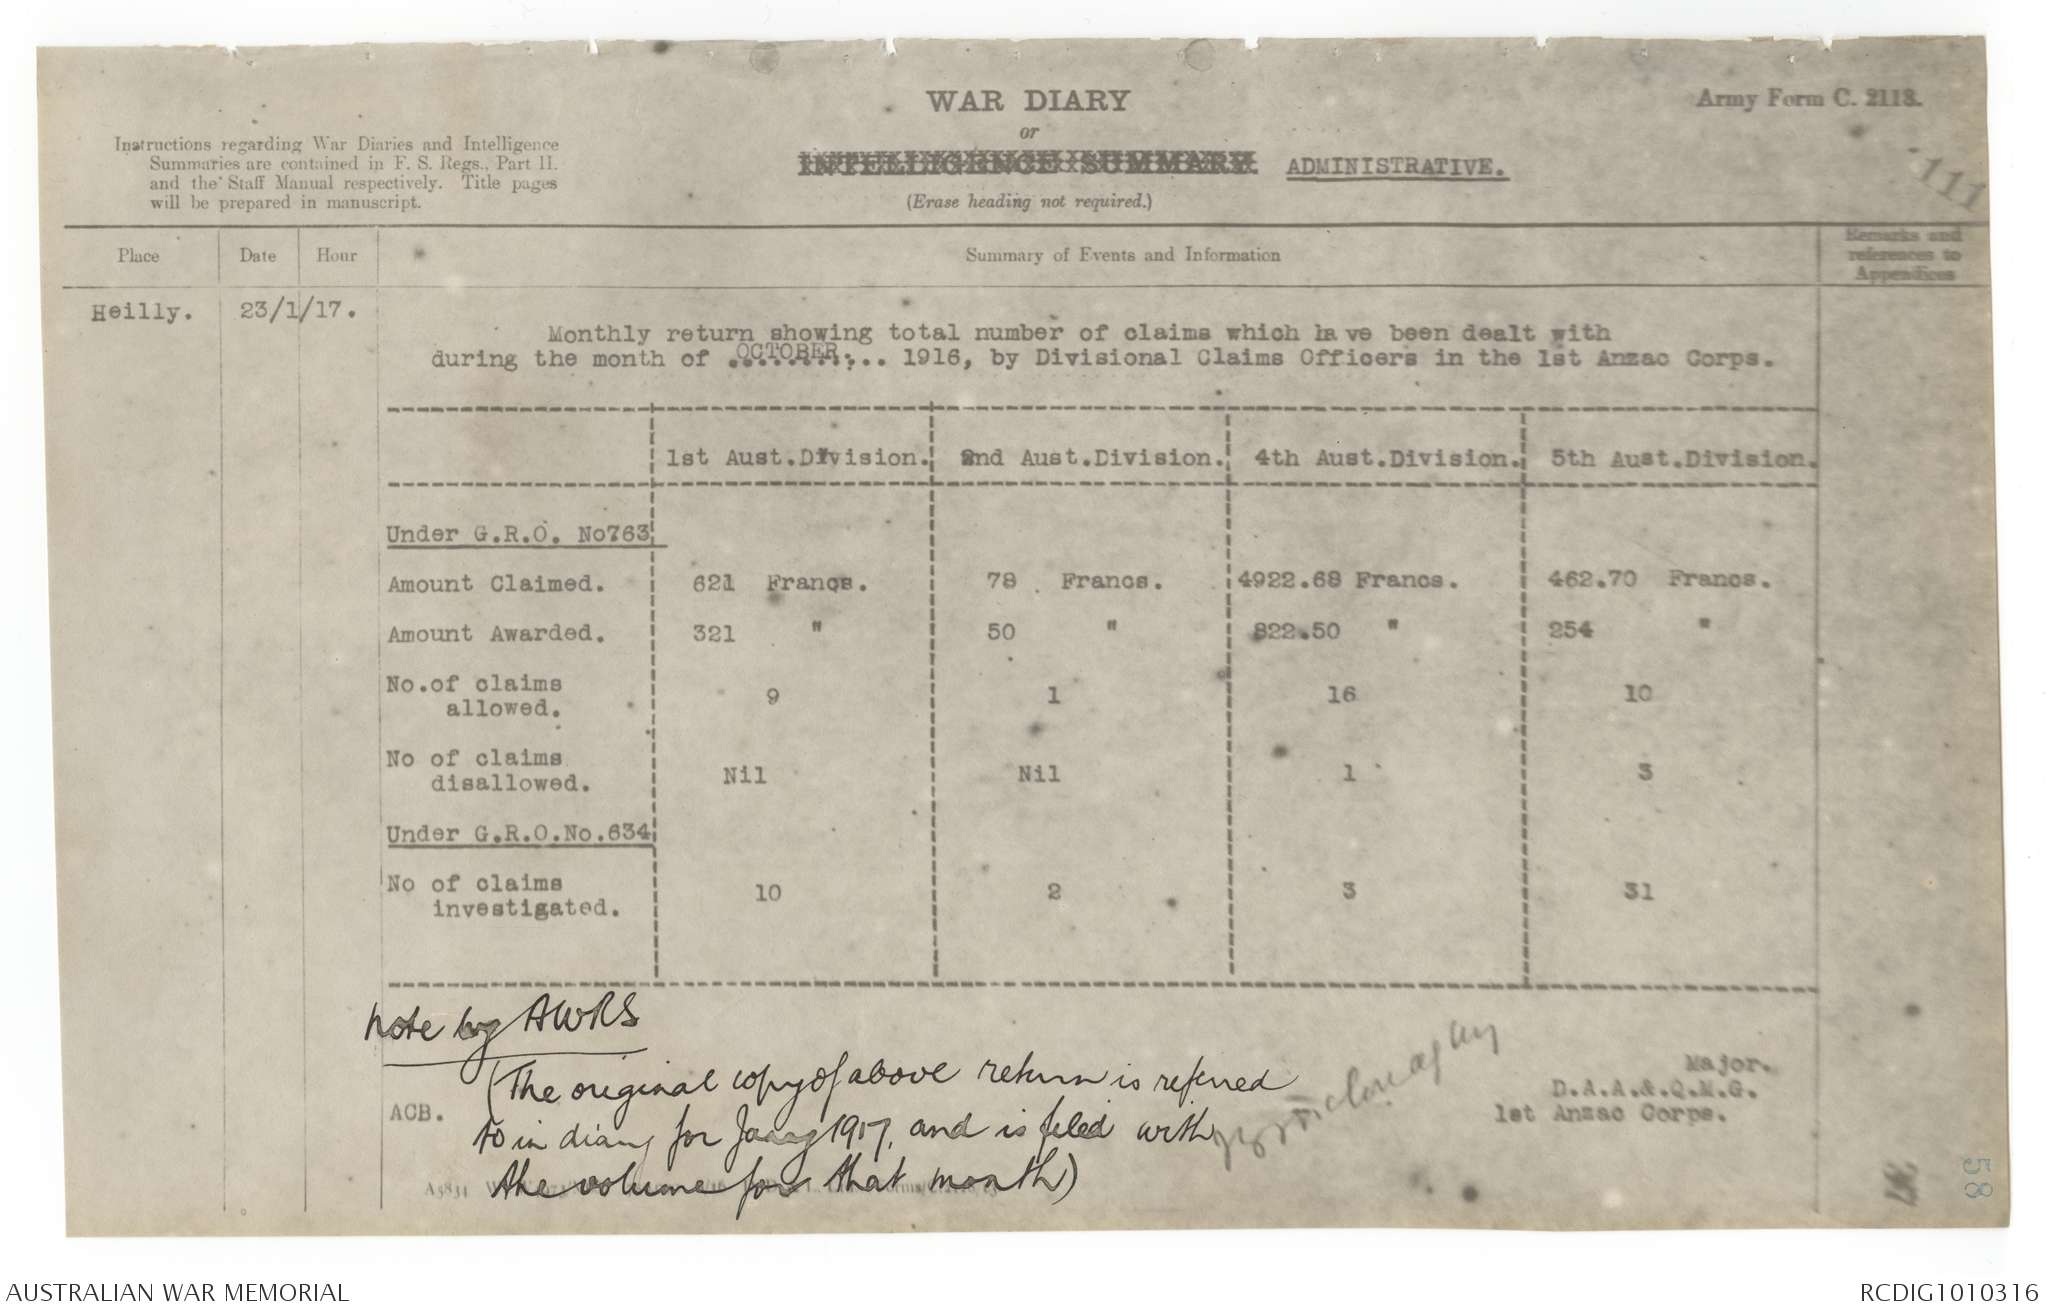 WAR DIARY
or
INTELLIGENCE SUMMARY. ADMINISTRATIVE.
(Erase heading not required.)
Army Form C. 2118.
111
Instructions regarding War Diaries and Intelligence
Summaries are contained in F. S. Regs., Part II.
and the Staff Manual respectively. Title pages
will be prepared in manuscript.
Place Date Hour Summary of Events and Information Remarks and references to Appendices
Heilly. 23/1/17.
Monthly return showing total number of claims which have been dealt with
during the month of OCTOBER 1916, by Divisional Claims Officers in the 1st Anzac Corps.
1st Aust.Division. 2nd Aust.Division. 4th Aust.Division. 5th Aust.Division.
Under G.R.O. No763
Amount Claimed. 621 Francs. 78 Francs. 4922.68 Francs. 462.70 Francs.
Amount Awarded. 321 " 50 " 822.50 " 254 "
No.of claims
allowed. 9 1 16 10
No of claims
disallowed. Nil Nil 1 3
Under G.R.O.No.634
No of claims
investigated. 10 2 3 31
Note by AWRS
(The original copy of above return is referred
to in diary for Jany 1917, and is filed with
the volume for that month)
ACB.
Major.
D.A.A.&.Q.M.G.
1st Anzac Corps.
A5834
58
AUSTRALIAN WAR MEMORIAL
RCDIG1010316